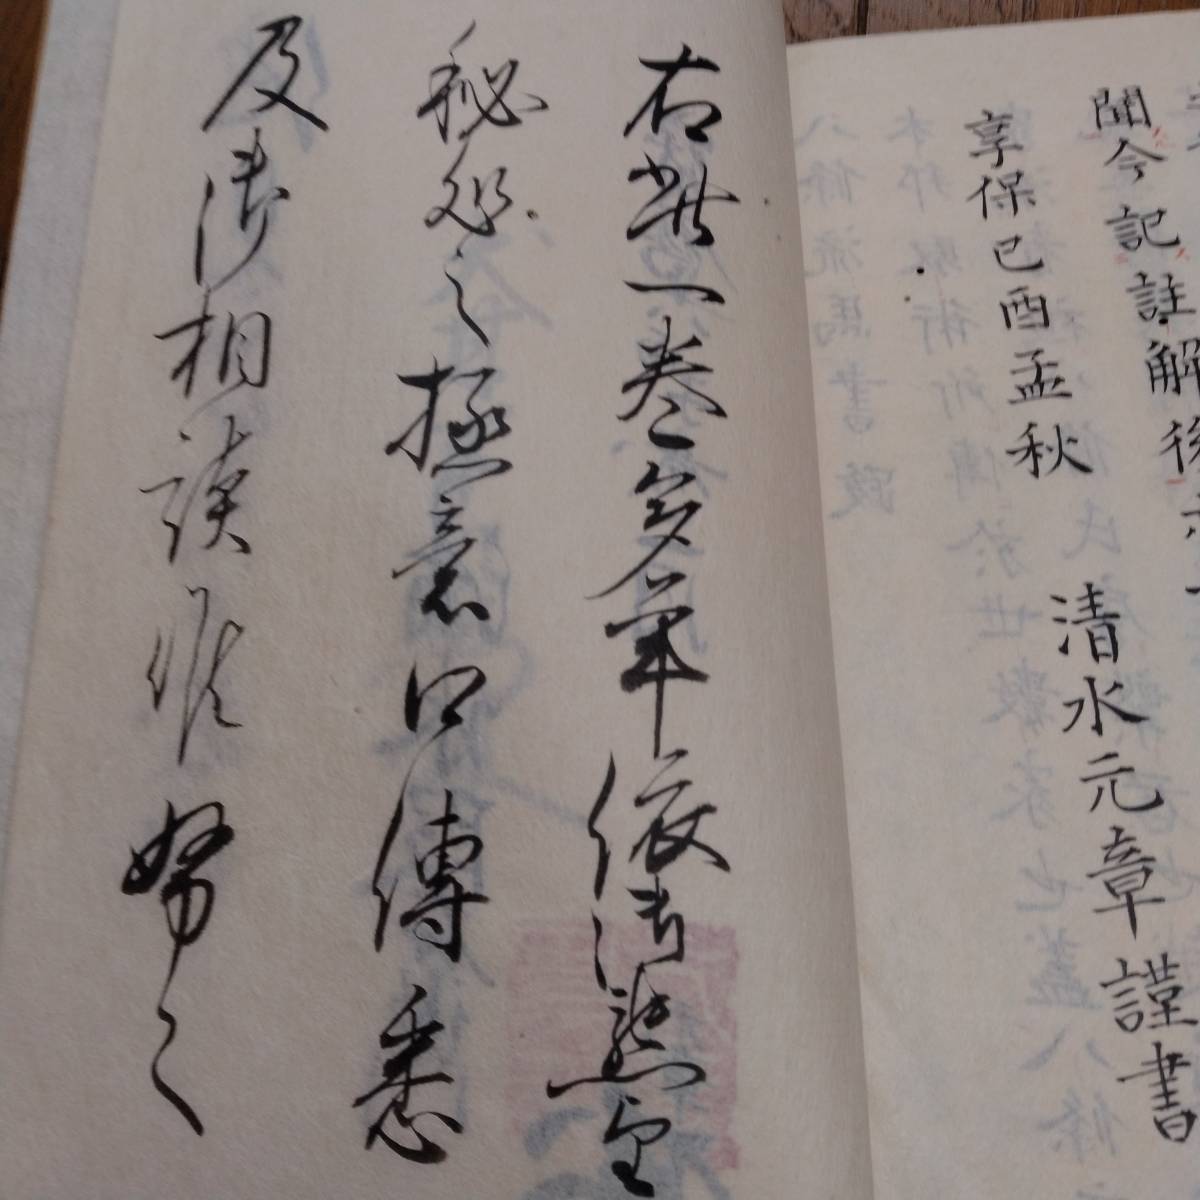 聞今記註解後
享保己酉孟秋
清水元章謹書
右此一巻多年依御懇望
秘処之極意口傳悉
及御相談難